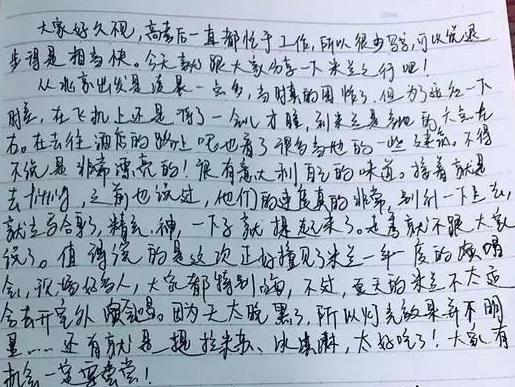 大家好久不见,高考后一直都忙于工作,所以很少写字,可以说退
步得是相当快。今天就跟大家分享一下米兰之行吧!
从北京出发是凌晨一点多,当时真的困惨了,但为了适应一下
时差,在飞机上还是撑了一会儿才睡,到米兰是当地的六点左
右。在去往酒店的路上呢也看了很多当地的一些建筑,不得
不说是非常漂亮的!很有意大利自己的味道。接着就是
去fitting,之前也说过,他们的速度真的非常,到一下
就去写合影了,精气神,一下子就提起来了。走秀就不跟大家
说了。值得说的是这次正好撞见了米兰一年一度的演唱
会,现场好多人,大家都特别嗨,不过,夏天的米兰不太适
合去开室外演唱会。因为天太晚黑了,所以灯光效果并不明
显……还有就是提拉米苏、冰淇淋,太好吃了!大家有
机会一定要尝尝!